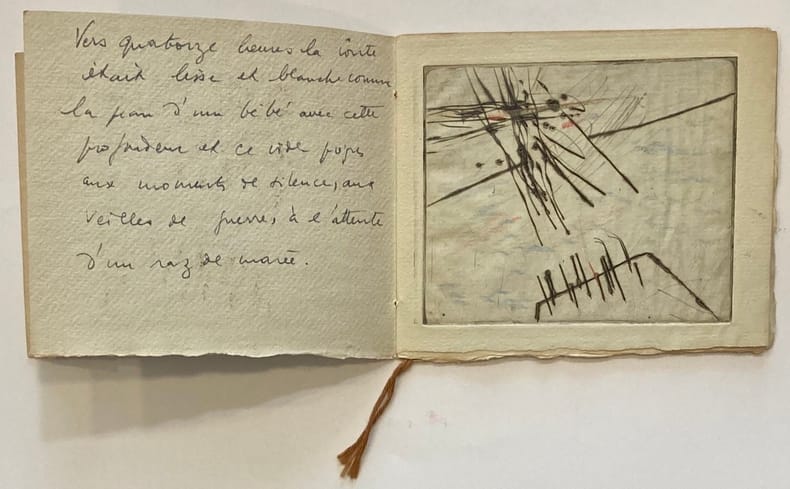 Vers quatorze heures la route
était lisse et blanche comme
la peau d'un bébé avec cette
profondeur et ce vide propres
aux moments de silence, aux
veilles de guerre, à l'attente
d'un raz de marée.